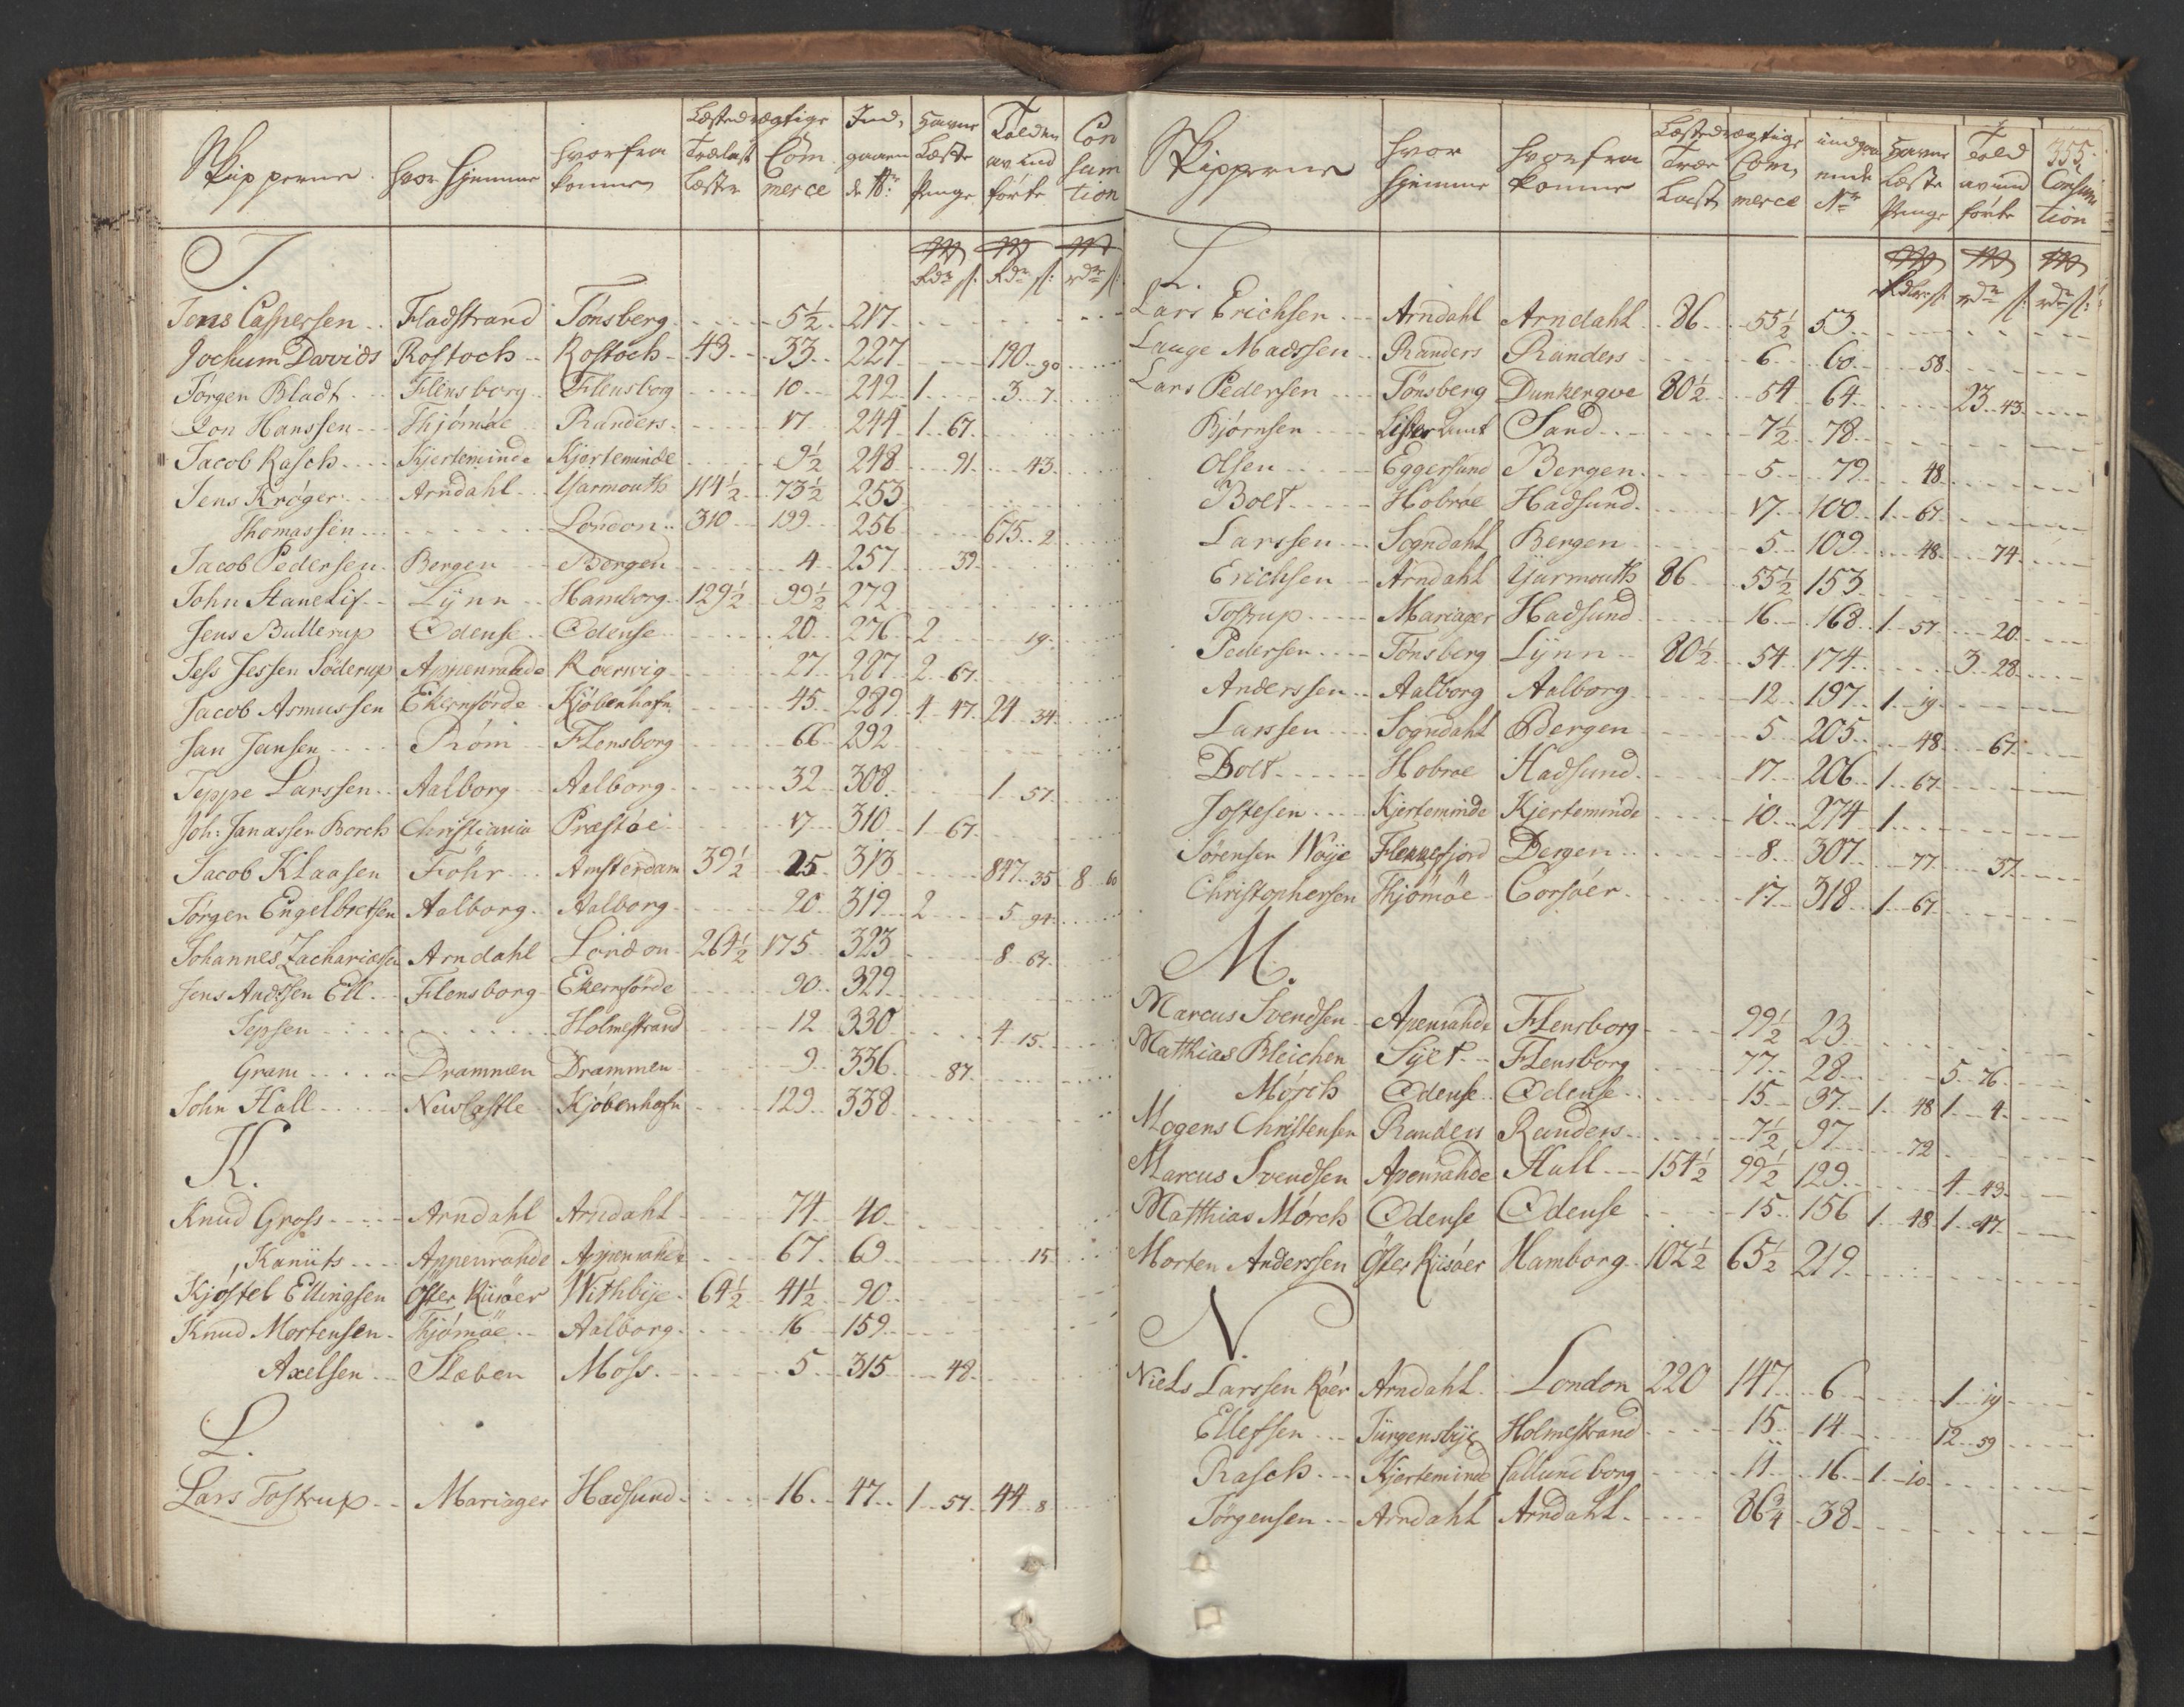 Skipperne. hvor hjemme hvorfra kommen Læstedrægtige Trælast Læster Com merce Ind, gaaen de Nr: Havne Læste Penge Tolden av ind førte Con sum tion
J.
Rdr s: Rdr s: rdr s:
Jens Caspersen Fladstrand Tønsberg 5½ 217
Jochum Davids Rostoch Rostoch 43 33 227 190 90
Jørgen Bladt Flensborg Flensborg 10 242 1 3 7
Jon Hanssen Thjømøe Randers 17 244 1 67
Jacob Rasch Kjerteminde Kjerteminde 9½ 248 91 43
Jens Krøger Arndahl Yarmouth 114½ 73½ 253
Thomassen London 310 199 256 675 2
Jacob Pedersen Bergen Bergen 4 257 39
John Stanelif Lÿnn Hamborg 129½ 99½ 272
Jens Bullerup Odense Odense 20 276 2 19
Jess Jessen Söderup Appenrahde Roerwig 27 287 2 67
Jacob Asmussen Ekernförde Kjöbenhafn 45 289 4 47 24 34
Jan Jansen Röm Flensborg 66 292
Jeppe Larssen Aalborg Aalborg 32 308 1 57
Joh: Janassen Borch Christiania Præstøe 17 310 1 67
Jacob Klaasen Föhr Amsterdam 39½ 25 313 847 35 8 60
Jørgen Engelbretsen Aalborg Aalborg 20 319 2 5 94
Johannes Zachariæsen Arndahl London 264½ 175 323 8 67
Jens Andssen Ell. Flensborg Ekernförde 90 329
Jepsen Holmestrand 12 330 4 15
Gram Drammen Drammen 9 336 87
John Hall NewCastle Kjøbenhafn 129 338
K.
Knud Gross Arndahl Arndahl 74 40
Kanüts Appenrahde Appenrahde 67 69 15
Kjøstel Ellingsen Øster Riisöer Withbÿe 64½ 41½ 90
Knud Mortensen Thjömöe Aalborg 16 159
Axelsen Stæben Moss 5 315 48
L.
Lars Tostrup Mariager Hadsund 16 47 1 57 44 8
355.
Skipperne hvor hjemme hvorfra komne Læstedrægtige Træ Læst Com, merce indgaa ende Nr Havne Læste Penge Told av ind førte Consum tion
L.
Rdlr s: rdr s: rdr s:
Lars Erichsen Arndahl Arndahl 86 55½ 53
Lauge Madssen Randers Randers 6 60 58
Lars Pedersen Tønsberg Dunkerqve 80½ 54 64 23 43
Bjørnsen Lister Amt Sand 7½ 78
Olsen Eggersund Bergen 5 79 48
Bolt Hobroe Hadsund 17 100 1 67
Larssen Sogndahl Bergen 5 109 48 74
Erichsen Arndahl Yarmouth 86 55½ 153
Tostrup Mariager Hadsund 16 168 1 57 20
Pedersen Tønsberg Lÿnn 80½ 54 174 3 28
Anderssen Aalborg Aalborg 12 197 1 19
Larssen Sogndahl Bergen 5 205 48 67
Bolt Hobroe Hadsund 17 206 1 67
Jostesen Kjerteminde Kjerteminde 10 274 1
Sørensen Woÿe Flekkefjord Bergen 8 307 77 37
Christophersen Thjömöe Corsöer 17 318 1 67
M.
Marcus Svendsen Apenrahde Flensborg 99½ 23
Matthias Bleichen Sÿlt Flensborg 77 28 5 76
Mørch Odense Odense 15 37 1 48 1 4
Mogens Christensen Randers Randers 7½ 97 72
Marcus Svendsen Apenrahde Hull 154½ 99½ 129 4 43
Matthias Mørch Odense Odense 15 156 1 48 1 47
Morten Anderssen Öster Riisöer Hamborg 102½ 65½ 219
N.
Niels Larssen Röer Arndahl London 220 147 6 1 19
Ellefsen Jürgensbÿe Holmestrand 15 14 12 59
Rasch Kjerteminde Callundborg 11 16 1 10
Jörgensen Arndahl Arndahl 86¾ 38